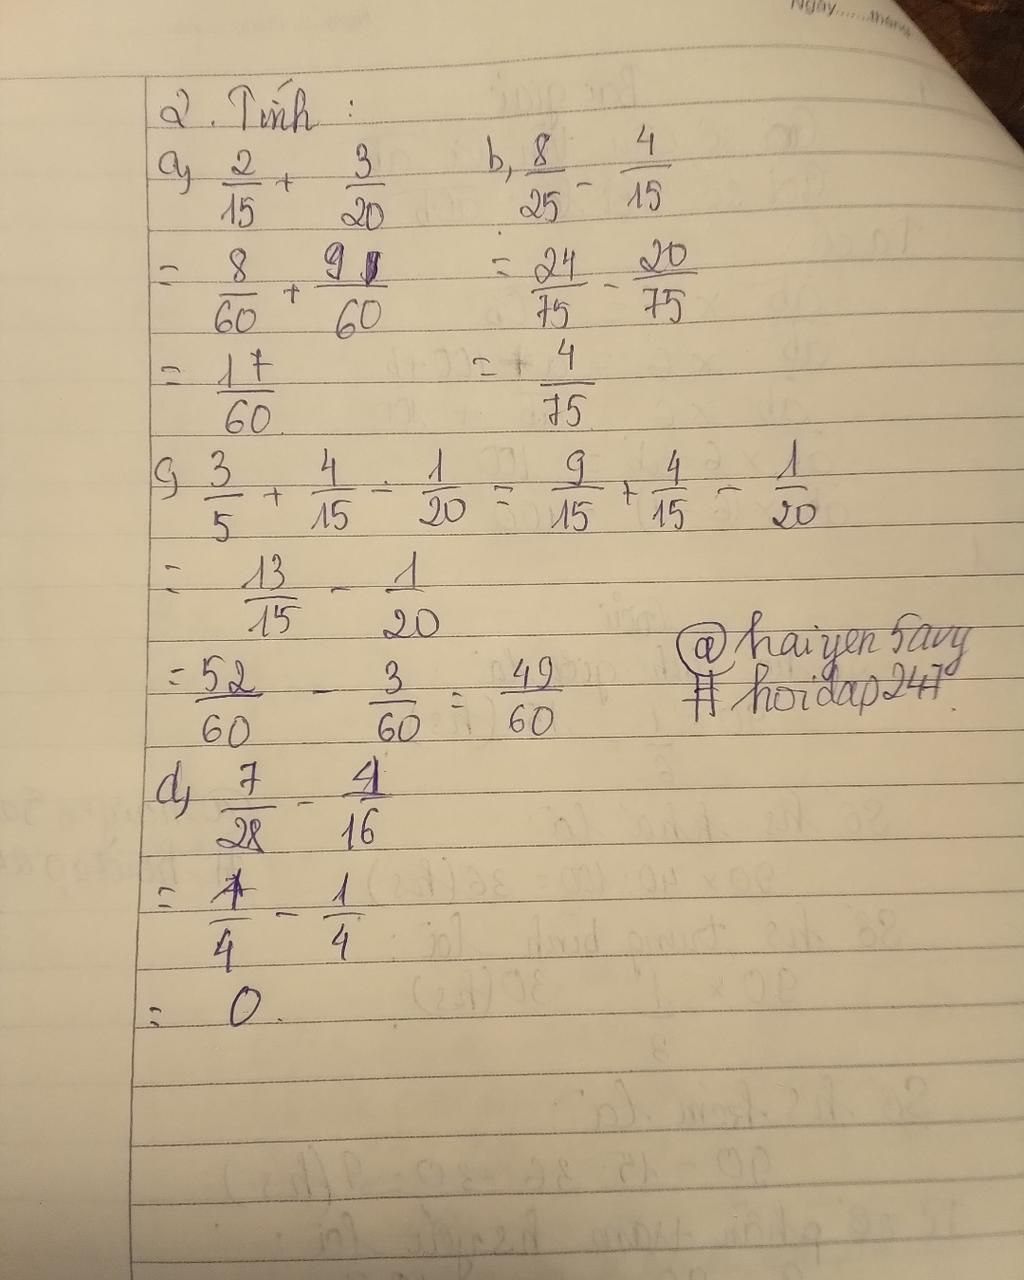 Ngày......tháng
2. Tính :
a, 2/15 + 3/20 b, 8/25 - 4/15
= 8/60 + 9/60 = 24/75 - 20/75
= 17/60 = 4/75
c, 3/5 + 4/15 - 1/20 = 9/15 + 4/15 - 1/20
= 13/15 - 1/20
= 52/60 - 3/60 = 49/60
@haiyen5avy
#hoidap247
d, 7/28 - 4/16
= 1/4 - 1/4
= 0.